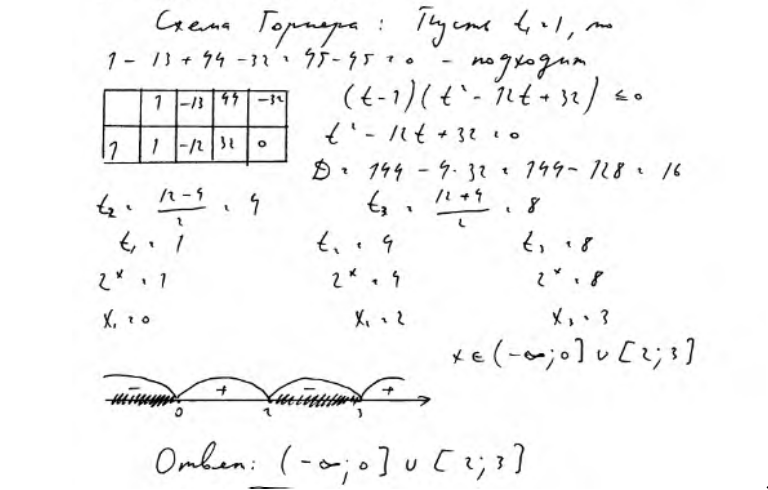 Схема Горнера: Пусть t₁=1, то
1-13+44-32=45-45=0 - подходит
1 -13 44 -32
1 1 -12 32 0
(t-1)(t²-12t+32)≤0
t²-12t+32=0
D=144-4·32=144-128=16
t₂=(12-4)/2=4 t₃=(12+4)/2=8
t₁=1 t₂=4 t₃=8
2ˣ=1 2ˣ=4 2ˣ=8
x₁=0 x₂=2 x₃=3
x∈(-∞;0]∪[2;3]
- + - +
0 2 3
Ответ: (-∞;0]∪[2;3]